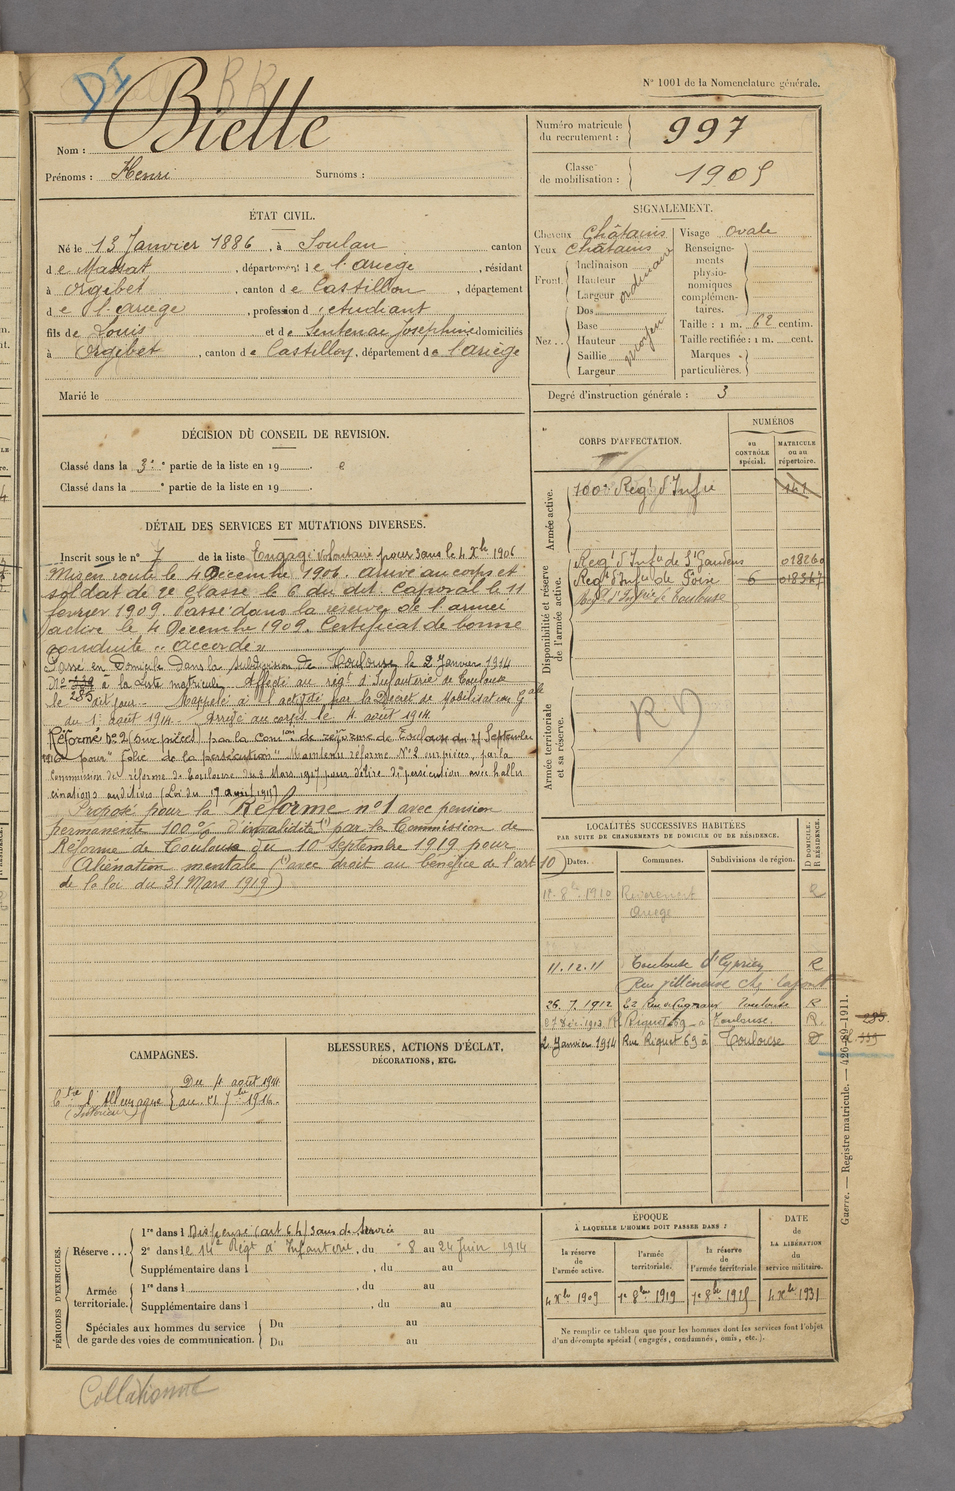 DI
RR
N° 1001 de la Nomenclature générale.
Nom : Biette
Prénoms : Henri Surnoms :
Numéro matricule du recrutement : 997
Classe de mobilisation : 1905
ÉTAT CIVIL.
Né le 13 Janvier 1886, à Soulan canton
de Massat, département de l'ariege, résidant
à Orgibet, canton de Castillon, département
de l'ariege, profession d'etudiant
fils de Louis et de Sentenac Josephine domiciliés
à Orgibet, canton de Castillon, département de l'ariège
Marié le
SIGNALEMENT.
Cheveux Châtains
Yeux Châtains
Front. Inclinaison Hauteur Largeur ordinaire
Nez.. Dos Base Hauteur Saillie Largeur moyen
Visage ovale
Renseignements physionomiques complémentaires.
Taille : 1 m. 62 centim.
Taille rectifiée : 1 m. cent.
Marques particulières.
Degré d'instruction générale : 3
DÉCISION DU CONSEIL DE REVISION.
Classé dans la 3e partie de la liste en 19
Classé dans la e partie de la liste en 19
DÉTAIL DES SERVICES ET MUTATIONS DIVERSES.
Inscrit sous le n° 7 de la liste Engagé volontaire pour 3 ans le 4 Xbre 1906
Mis en route le 4 Décembre 1906. arrivé au corps et
soldat de 2e classe le 6 du dit. Caporal le 11
février 1909. Passé dans la réserve de l'armée
active le 4 Décembre 1909. Certificat de bonne
conduite "accordé"
Passé en Domicile dans la subdivision de Toulouse le 2 Janvier 1914
N° 119 à la Liste matricule. Affecté au régt d'Infanterie de Toulouse
285
le dit jour. Rappelé à l'activité par le Décret de Mobilisation Gale
du 1er août 1914. Arrivé au corps le 4 août 1914.
Réformé N° 2 (sur pièces) par la Comon de réforme de Toulouse du 21 Septembre
1916 pour "folie de la persécution" Maintenu réformé N° 2 sur pièces, par la
Commission de réforme de Toulouse du 8 Mars 1917 pour délire de persécution avec hallu
cinations auditives (Loi du 17 avril 1915)
Proposé pour la Réforme n° 1 avec pension
permanente 100 % d'invalidité (1) par la Commission de
Réforme de Toulouse du 10 Septembre 1919 pour
Aliénation mentale (1) avec droit au bénéfice de l'art 10)
de la loi du 31 Mars 1919)
CORPS D'AFFECTATION.
NUMÉROS
au CONTRÔLE spécial.
MATRICULE ou au répertoire.
Armée active.
100e Régt d'Infie 161
Disponibilité et réserve de l'armée active.
Regt d'Infie de St Gaudens 01826
Regt d'Infie de Foix 6
Regt d'Infie de Toulouse
Armée territoriale et sa réserve.
LOCALITÉS SUCCESSIVES HABITÉES
PAR SUITE DE CHANGEMENTS DE DOMICILE OU DE RÉSIDENCE.
Dates. Communes. Subdivisions de région. D DOMICILE. R RÉSIDENCE.
1910 Ariege R
11.12.11 Toulouse St Cyprien R
Rue Villeneuve chez Lafont
26.7.1912 Toulouse R
1913 R. Riquet 69 à Toulouse. R.
2 Janvier 1914 Rue Riquet 69 à Toulouse D
285
CAMPAGNES.
Ctre l'Allemagne (Intérieur) Du 4 août 1914 au 21 7bre 1916.
BLESSURES, ACTIONS D'ÉCLAT,
DÉCORATIONS, ETC.
PÉRIODES D'EXERCICES.
Réserve... 1re dans l Dispensé (art 6 h) 3 ans de service au
2e dans le 14e Régt d'Infanterie, du 8 au 24 Juin 1914
Supplémentaire dans l , du au
Armée territoriale. 1re dans l , du au
Supplémentaire dans l , du au
Spéciales aux hommes du service de garde des voies de communication. Du au
Du au
ÉPOQUE
À LAQUELLE L'HOMME DOIT PASSER DANS :
la réserve de l'armée active. l'armée territoriale. la réserve de l'armée territoriale
DATE de LA LIBÉRATION du service militaire.
4 Xbre 1909 1er 8bre 1919 1er 8bre 1925 4 Xbre 1931
Ne remplir ce tableau que pour les hommes dont les services font l'objet
d'un décompte spécial (engagés, condamnés, omis, etc.).
Guerre. — Registre matricule. — 426-89-1911.
Collationné